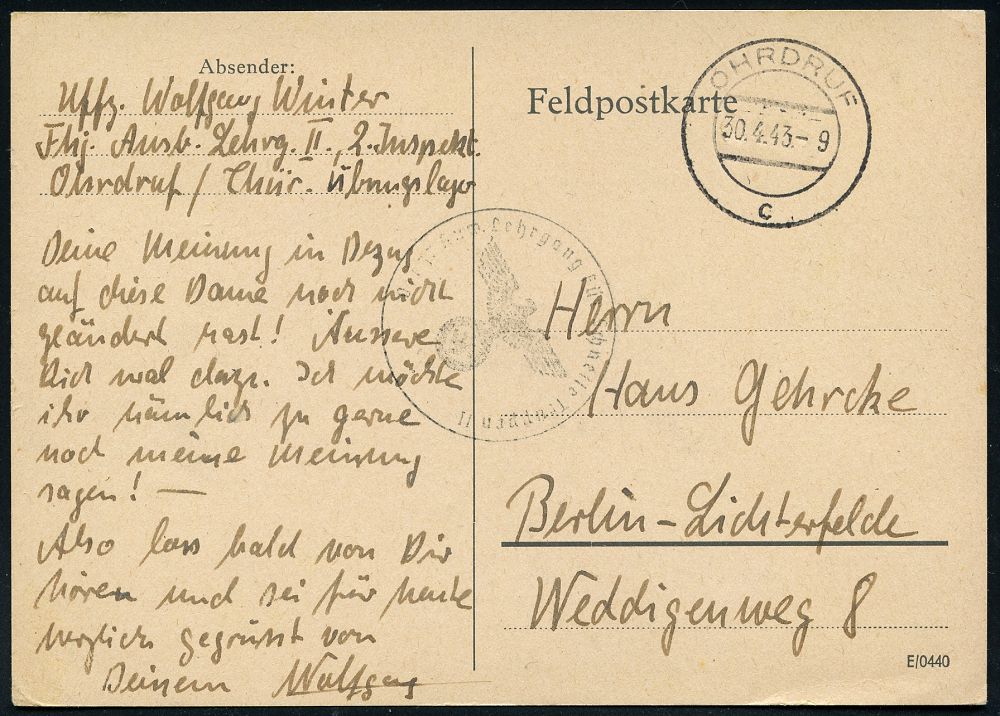 Absender:
Uffz. Wolfgang Winter
Fhj. Ausb. Lehrg. II., 2. Inspekt.
Ohrdruf / Thür. Übungslager
Deine Meinung in Bezug
auf diese Dame noch nicht
geändert hast! Äussere
Dich mal dazu. Ich möchte
ihr nämlich zu gerne
noch meine Meinung
sagen! —
Also lass bald von Dir
hören und sei für heute
herzlich gegrüsst von
Deinem Wolfgang
Feldpostkarte
OHRDRUF
30.4.43.- 9
c
Lehrgang Schnelle Truppen II
Herrn
Hans Gehrcke
Berlin-Lichterfelde
Weddigenweg 8
E/0440